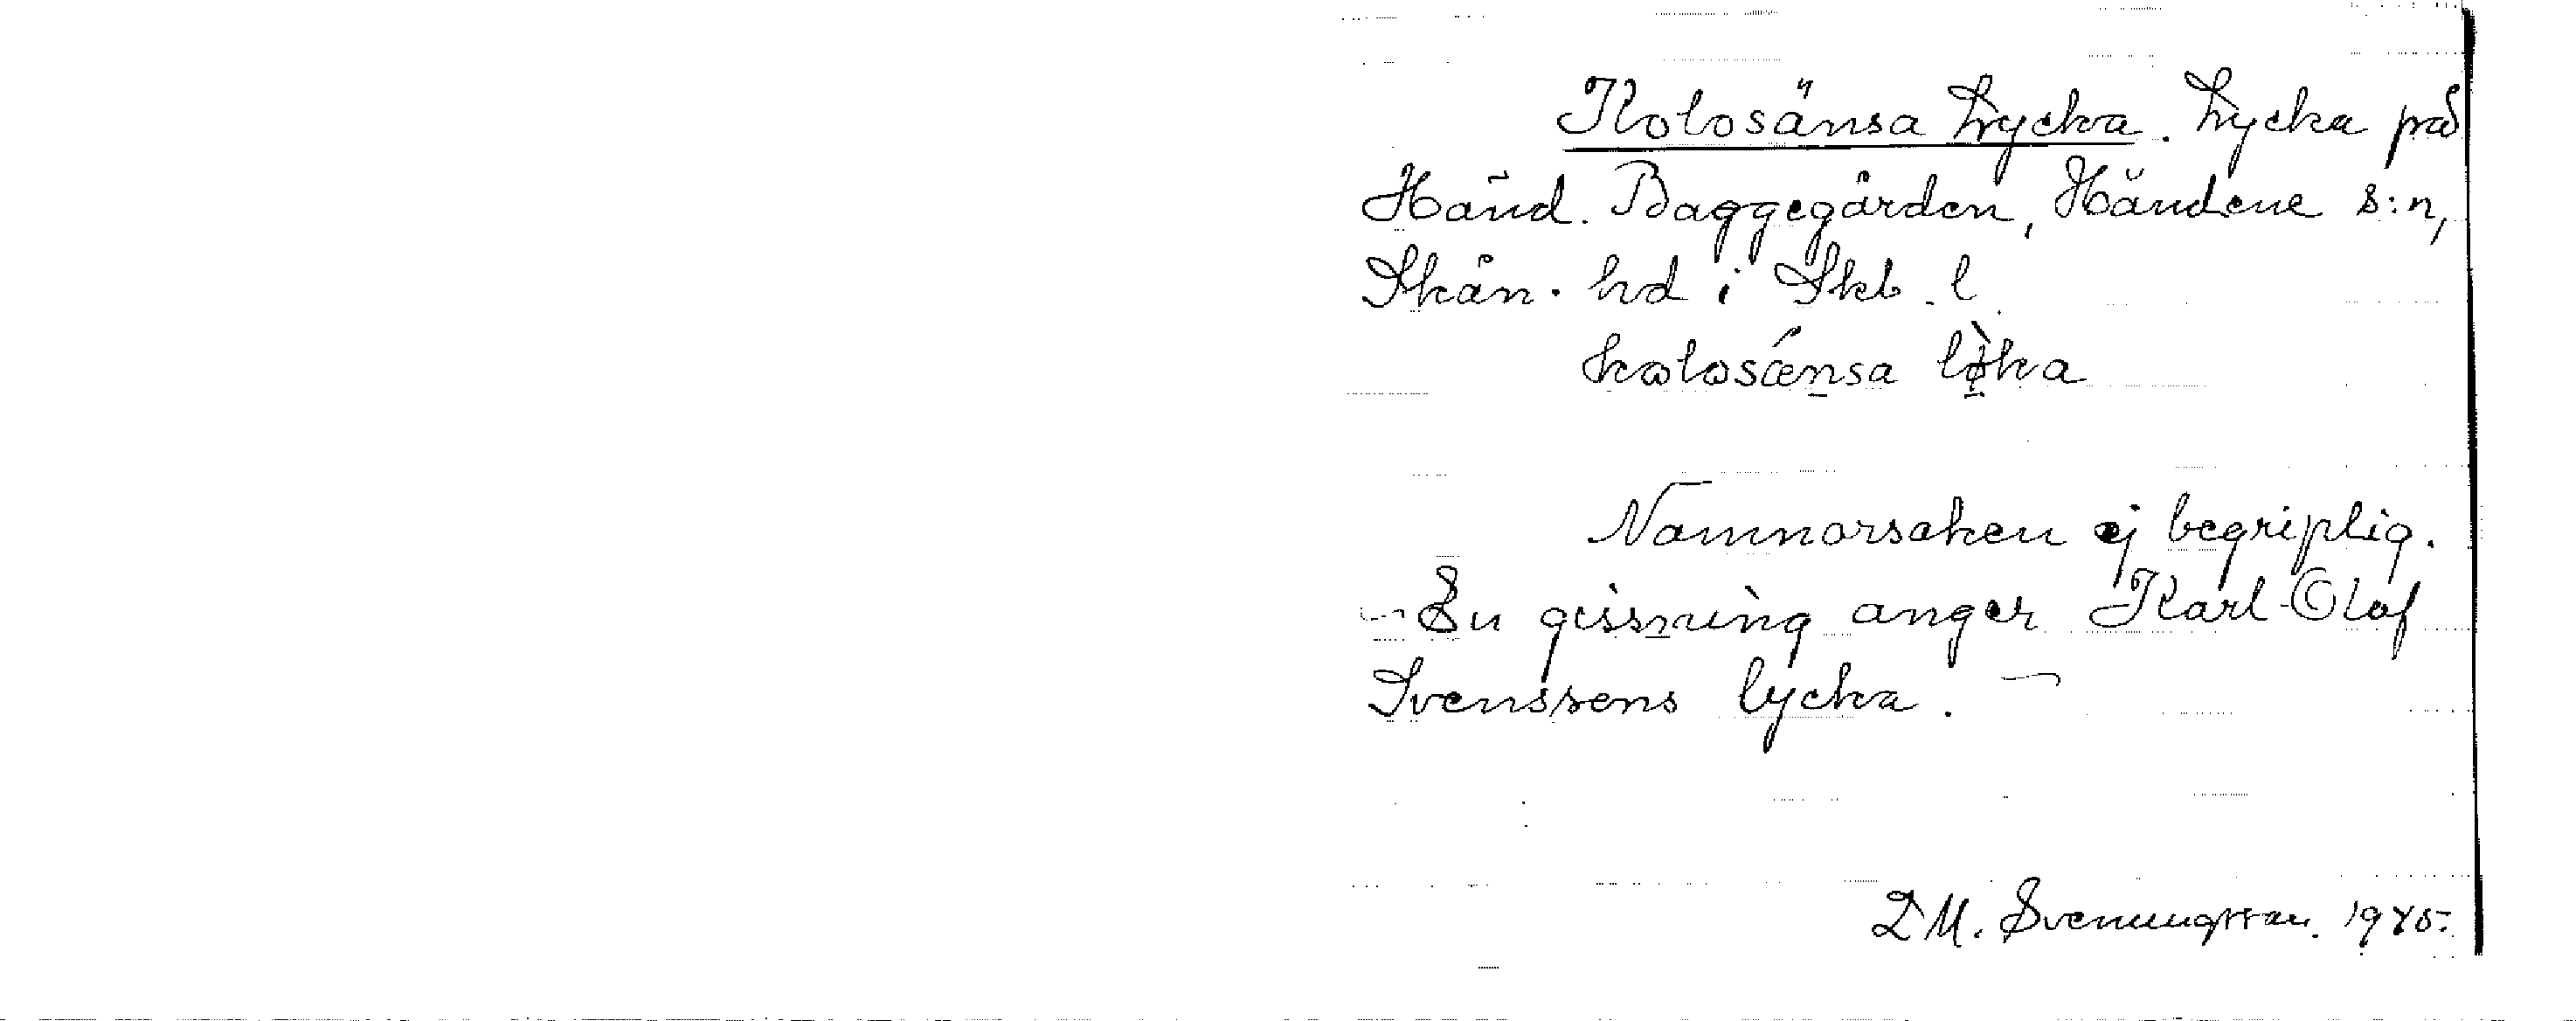 Kolosänsa Lycka. Lycka på
Händ. Baggegården, Händene s:n,
Skån. hd i Skb. l.
kolosǽnsa lø̀ka
Namnorsaken ej begriplig.
En gissning anger Karl-Olof
Svenssens lycka.
D M. Svenungsson. 1945.